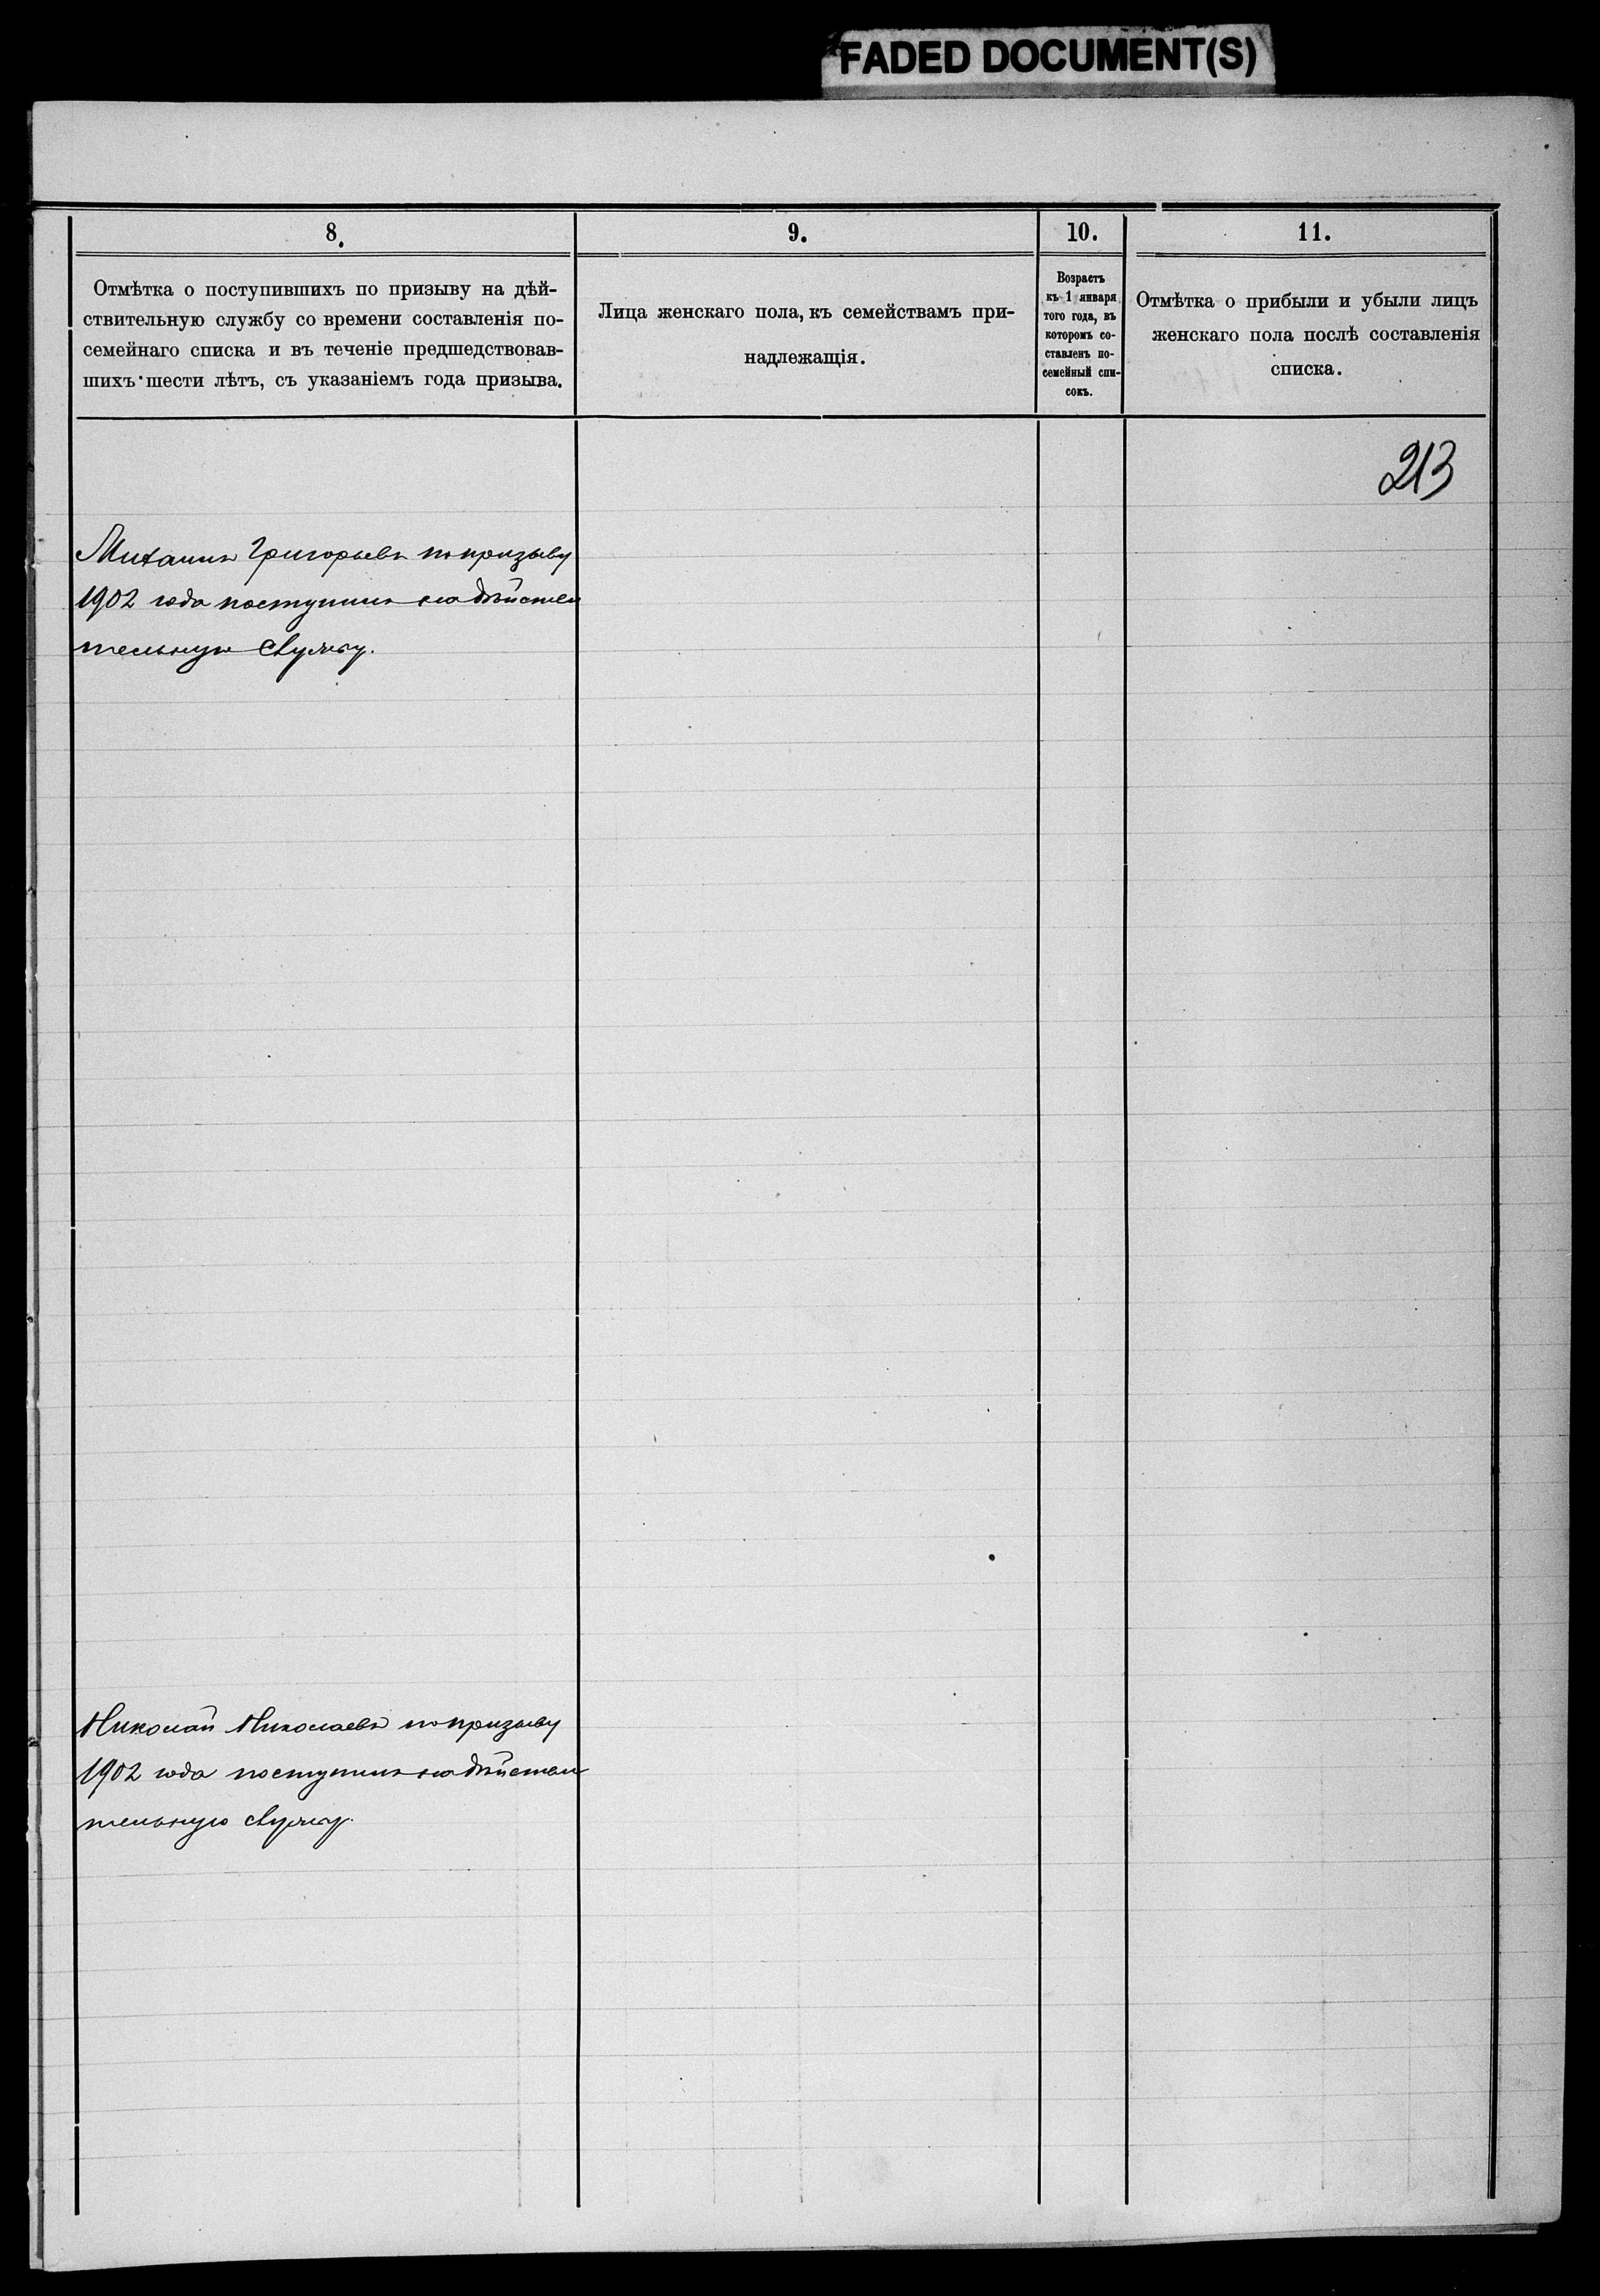 FADED DOCUMENT(S)
8.
Отмѣтка о поступившихъ по призыву на дѣй-
ствительную службу со времени составленія по-
семейнаго списка и въ теченіе предшедствовав-
шихъ шести лѣтъ, съ указаніемъ года призыва.
9.
Лица женскаго пола, къ семействамъ при-
надлежащія.
10.
Возрастъ
къ 1 января
того года, въ
которомъ со-
ставленъ по-
семейный спи-
сокъ.
11.
Отмѣтка о прибыли и убыли лицъ
женскаго пола послѣ составленія
списка.
213
Михаилъ Григорьевъ по призыву
1902 года поступилъ на дѣйстви
тельную службу.
Николай Николаевъ по призыву
1902 года поступилъ на дѣйстви
тельную службу.